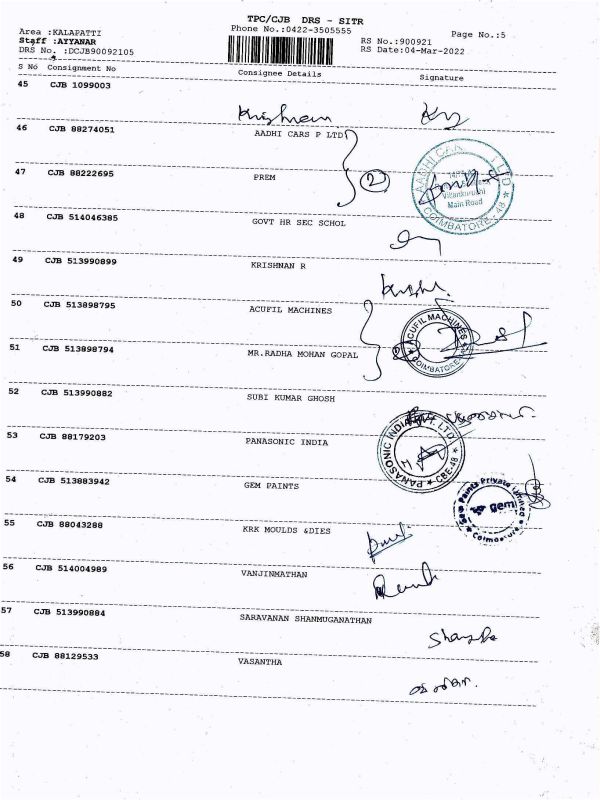 TPC/CJB DRS - SITR
Area :KALAPATTI
Phone No.:0422-3505555
Page No.:5
Staff :AYYANAR
RS No.:900921
DRS No. :DCJB90092105
RS Date:04-Mar-2022
S No Consignment No Consignee Details Signature
45 CJB 1099003
Krishnan
46 CJB 88274051 AADHI CARS P LTD
47 CJB 88222695 PREM
2
AADHI CARS
LTD
Main Road
COIMBATORE - 48
48 CJB 514046385 GOVT HR SEC SCHOL
49 CJB 513990899 KRISHNAN R
50 CJB 513898795 ACUFIL MACHINES
51 CJB 513898794 MR.RADHA MOHAN GOPAL
2
ACUFIL MACHINES
COIMBATORE
52 CJB 513990882 SUBI KUMAR GHOSH
53 CJB 88179203 PANASONIC INDIA
PANASONIC INDIA PVT. LTD
CBE-48
54 CJB 513883942 GEM PAINTS
Gem Paints Private Limited
gem
Coimbatore
55 CJB 88043288 KRK MOULDS &DIES
56 CJB 514004989 VANJINMATHAN
57 CJB 513990884 SARAVANAN SHANMUGANATHAN
58 CJB 88129533 VASANTHA